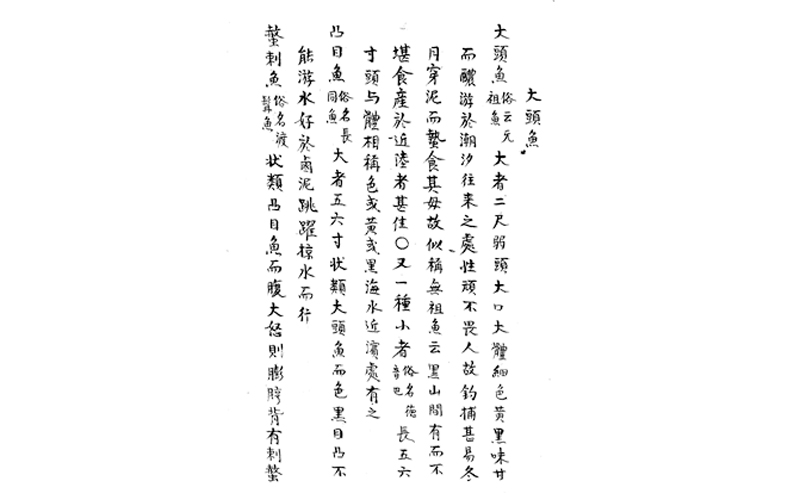 大頭魚
大頭魚俗云无祖魚大者二尺弱頭大口大體細色黃黑味甘
而醲游於潮汐往來之處性頑不畏人故釣捕甚易冬
月穿泥而蟄食其母故似稱無祖魚云黑山間有而不
堪食産於近陸者甚佳〇又一種小者俗名德音巴長五六
寸頭与體相稱色或黃或黑海水近濱處有之
凸目魚俗名長同魚大者五六寸状類大頭魚而色黑目凸不
能游水好於鹵泥跳躍掠水而行
螫刺魚俗名魚状類凸目魚而腹大怒則膨脝背有刺螫